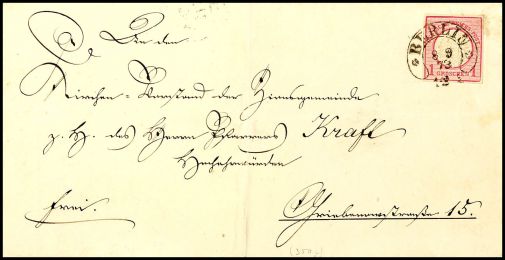 An den
Kirchen-Vorstand der Zionsgemeinde
z. H. des Herrn Pfarrers Kraft
Hochehrwürden
frei.
Griebenowstraße 15.
BERLIN
1 GROSCHEN